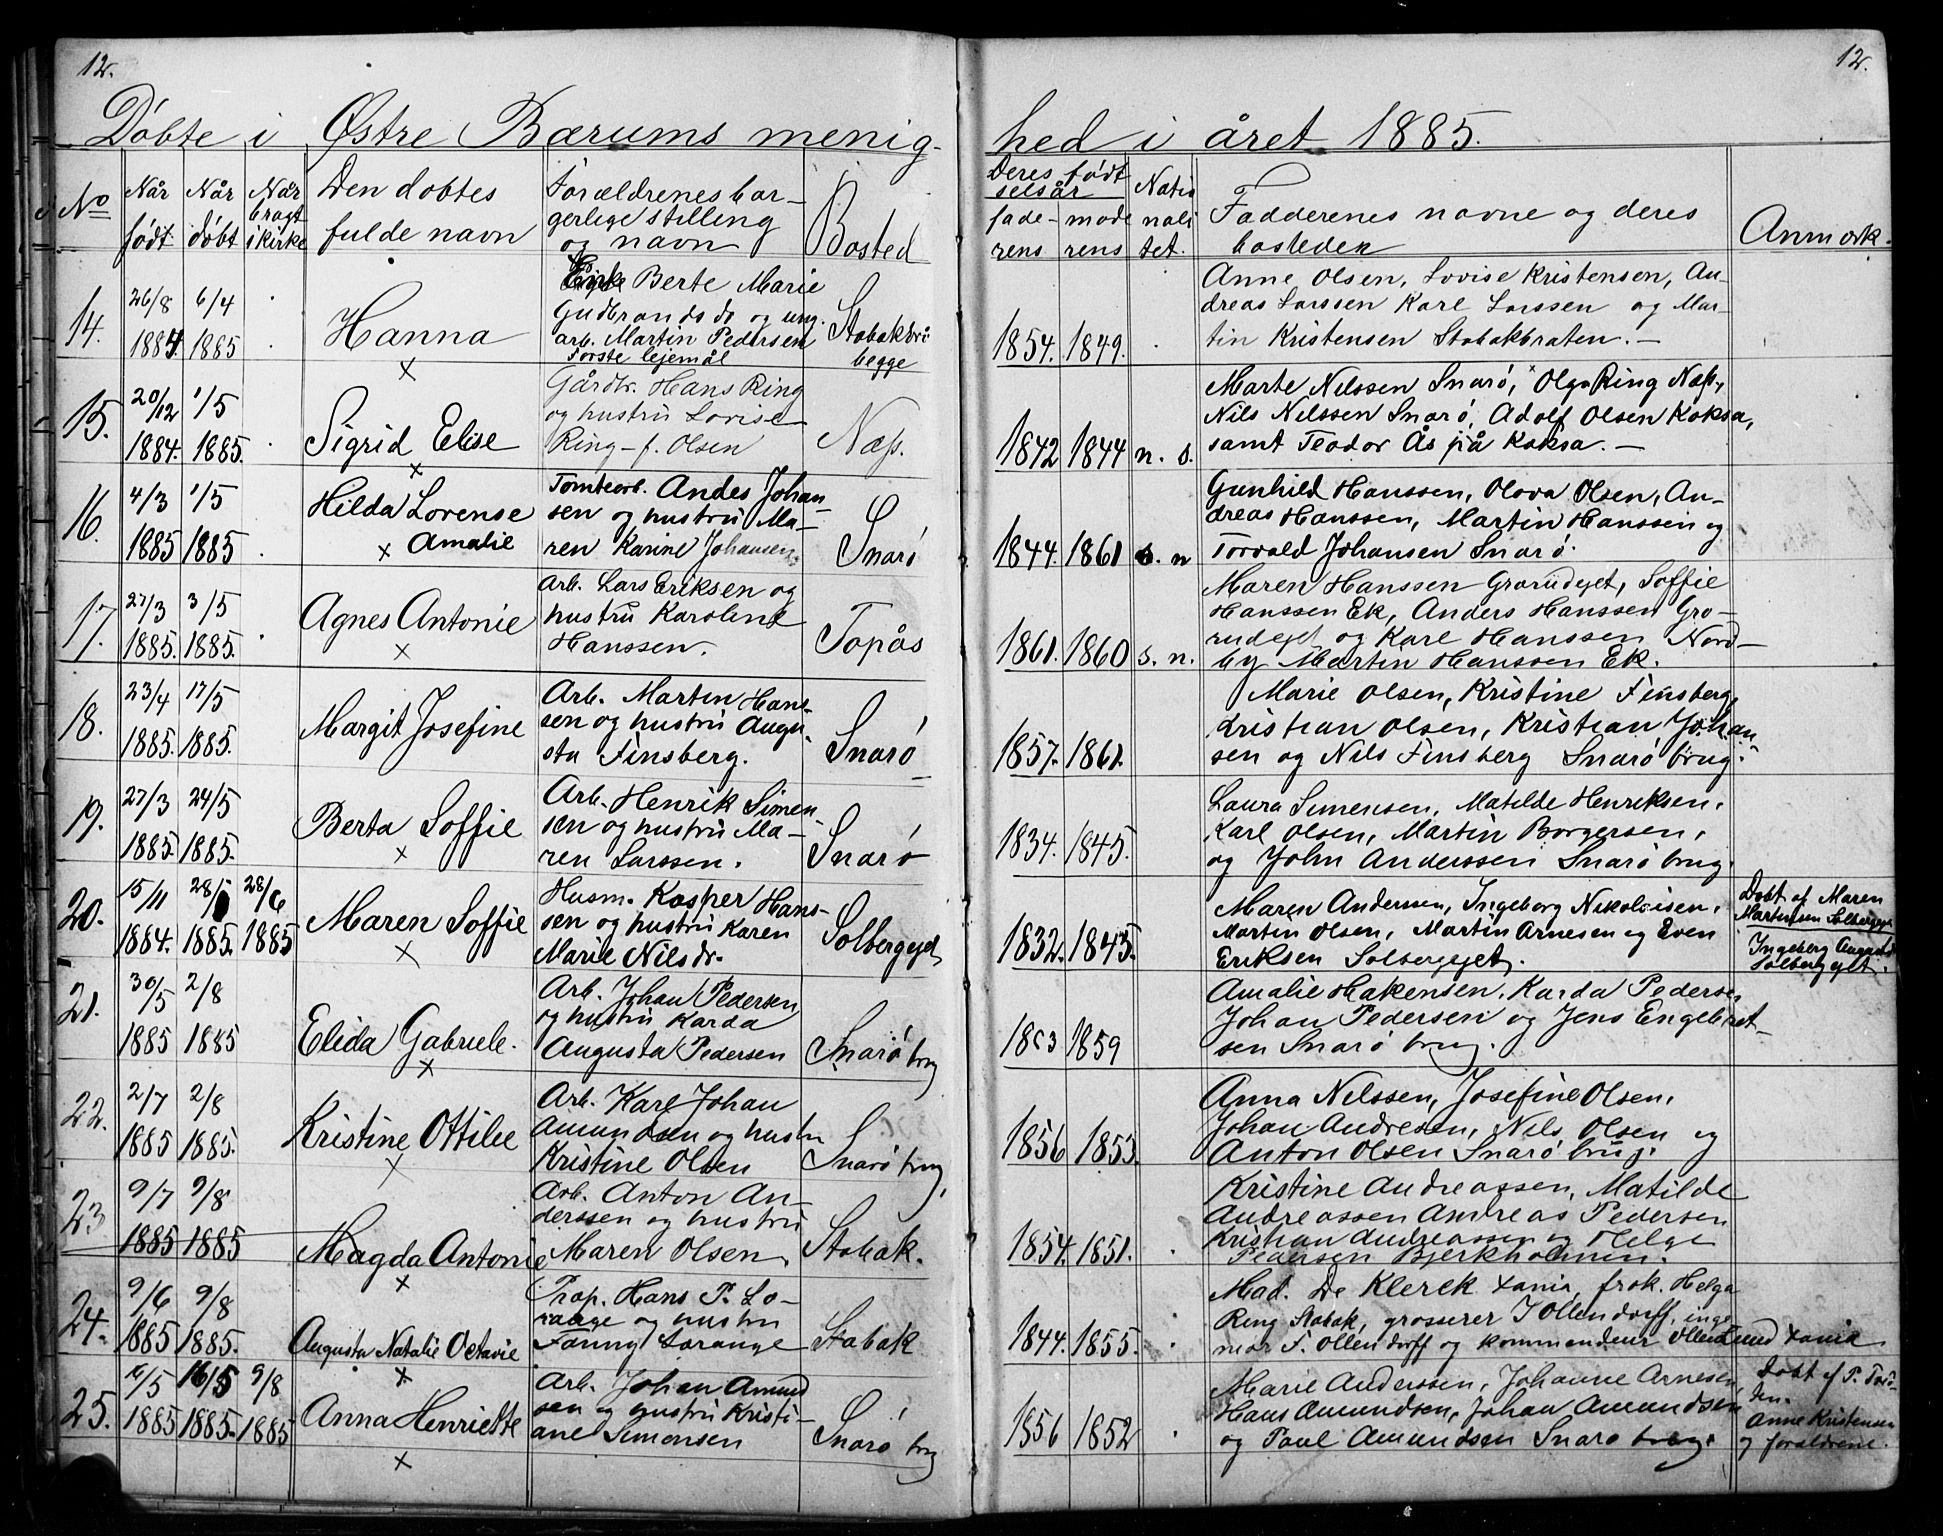 12.
12.
Døbte i Østre Bærums menig-
hed i året 1885.
No
Når født
Når døbt
Når bragt i kirke
Den døbtes fulde navn
Forældrenes borgerlige stilling og navn
Bosted
Deres fødselsår
faderens
moderens
Nationalitet.
Faddernes navne og deres bosteder
Anmærk.
14.
26/8 1884.
6/4 1885
Hanna
×
Berte Marie
Gudbrandsd og ung.
arb. Martin Pedersen
Første lejemål
begge
1854. 1849.
Anne Olsen, Lovise Kristensen, An-
dreas Larssen Karl Larssen og Mar-
tin Kristensen Stabakbraten. —
15.
20/12 1884.
1/5 1885.
Sigrid Elise
×
Gårdbr. Hans Ring
og hustru Lovise
Ring - f. Olsen
Næs.
1842 1844 n. s.
Marte Nilssen Snarø, Olga Ring Næs,
Nils Nilssen Snarø, Adolf Olsen Koksa,
samt Teodor Ås på Koksa. —
16.
4/3 1885
1/5 1885
Hilda Lorense
× Amalie
Tomtearb. Andes Johan-
sen og hustru Ma-
ren Karine Johansen.
Snarø
1844. 1861 s. n
Gunhild Hanssen, Olova Olsen, An-
dreas Hanssen, Martin Hanssen og
Torvald Johansen Snarø.
17.
27/3 1885.
3/5 1885.
Agnes Antonie
×
Arb. Lars Eriksen og
hustru Karoline
Hanssen.
Topås
1861. 1860 s. n.
Maren Hanssen Grorudejet, Soffie
Hanssen Ek, Anders Hanssen Gro-
rudejet og Karl Hanssen Nord-
by Martin Hanssen Ek.
18.
23/4 1885.
17/5 1885.
Margit Josefine
Arb. Martin Hans-
sen og hustru Augu-
sta Finsberg.
Snarø
1857. 1861.
Marie Olsen, Kristine Finsberg,
Kristian Olsen, Kristian Johan-
sen og Nils Finsberg Snarø brug.
19.
27/3 1885.
24/5 1885.
Berta Soffie
×
Arb. Henrik Simen-
sen og hustru Ma-
ren Larssen.
Snarø
1834. 1845.
Laura Simensen, Matilde Henriksen,
Karl Olsen, Martin Borgersen,
og John Anderssen Snarø brug.
20.
15/11 1884.
1885.
28/6 1885
Maren Soffie
×
Husm. Kasper Hans-
sen og hustru Karen
Marie Nilsdr.
Solbergejet
1832. 1845.
Maren Andersen, Ingeborg Nikolaisen,
Martin Olsen, Martin Arnesen og Even
Eriksen Solbergejet.
Døbt af Maren
Martinsen Solbergejet
Ingeborg
Solbergejet.
21.
30/5 1885
2/8 1885
Elida Gabriele.
×
Arb. Johan Pedersen
og hustru Karda
Augusta Pedersen
Snarø brug
1859
Amalie Hakensen, Karda Pedersen
Johan Pedersen og Jens Engebret-
sen Snarø brug.
22.
2/7 1885
2/8 1885.
Kristine Ottilie
×
Arb. Karl Johan
Amundsen og hustru
Kristine Olsen
Snarø brug,
1856 1853.
Anna Nilssen, Josefine Olsen,
Johan Andresen, Nils Olsen og
Anton Olsen Snarø brug.
23
9/7 1885
9/8 1885
Magda Antonie
×
Arb. Anton An-
derssen og hustru
Maren Olsen.
Stabak.
1854. 1851.
Kristine Andreassen, Matilde
Andreassen Andreas Pedersen
Kristian Andreassen og Helge
Pedersen Bjerkholmen.
24.
9/6 1885
9/8 1885.
Augusta Natalie Octavie
×
Prop. Hans P. Lo-
range og hustru
Fanny Lorange
Stabak
1844. 1855.
Mad. De Klerck Xania, frøk. Helga
Ring Stabak, grosserer J Ollendorff, inge-
niør F. Ollendorff og kommandeur Xania
25.
1885
16/5 1885.
9/8 1885
Anna Henriette
×
Arb. Johan Amund
sen og hustru Kristi-
ane Simensen
Snarø brug
1856 1852
Marie Anderssen, Johanne Arnesen
Hans Amundsen, Johan Amundsen
og Paul Amundsen Snarø brug.
Døbt af P.
Anne Kristensen
og forældrene.